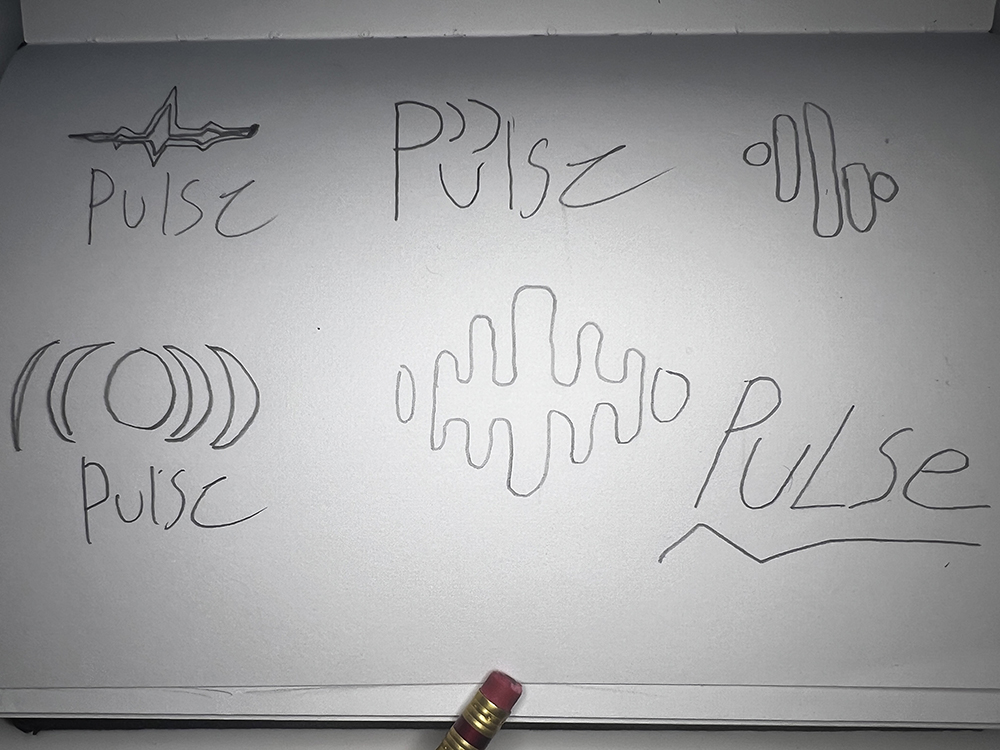 Pulse
Pulse
Pulse
PULSe